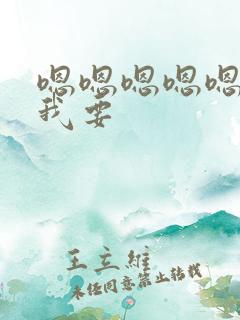 嗯嗯嗯嗯嗯
我要
王立維
未经同意禁止转载